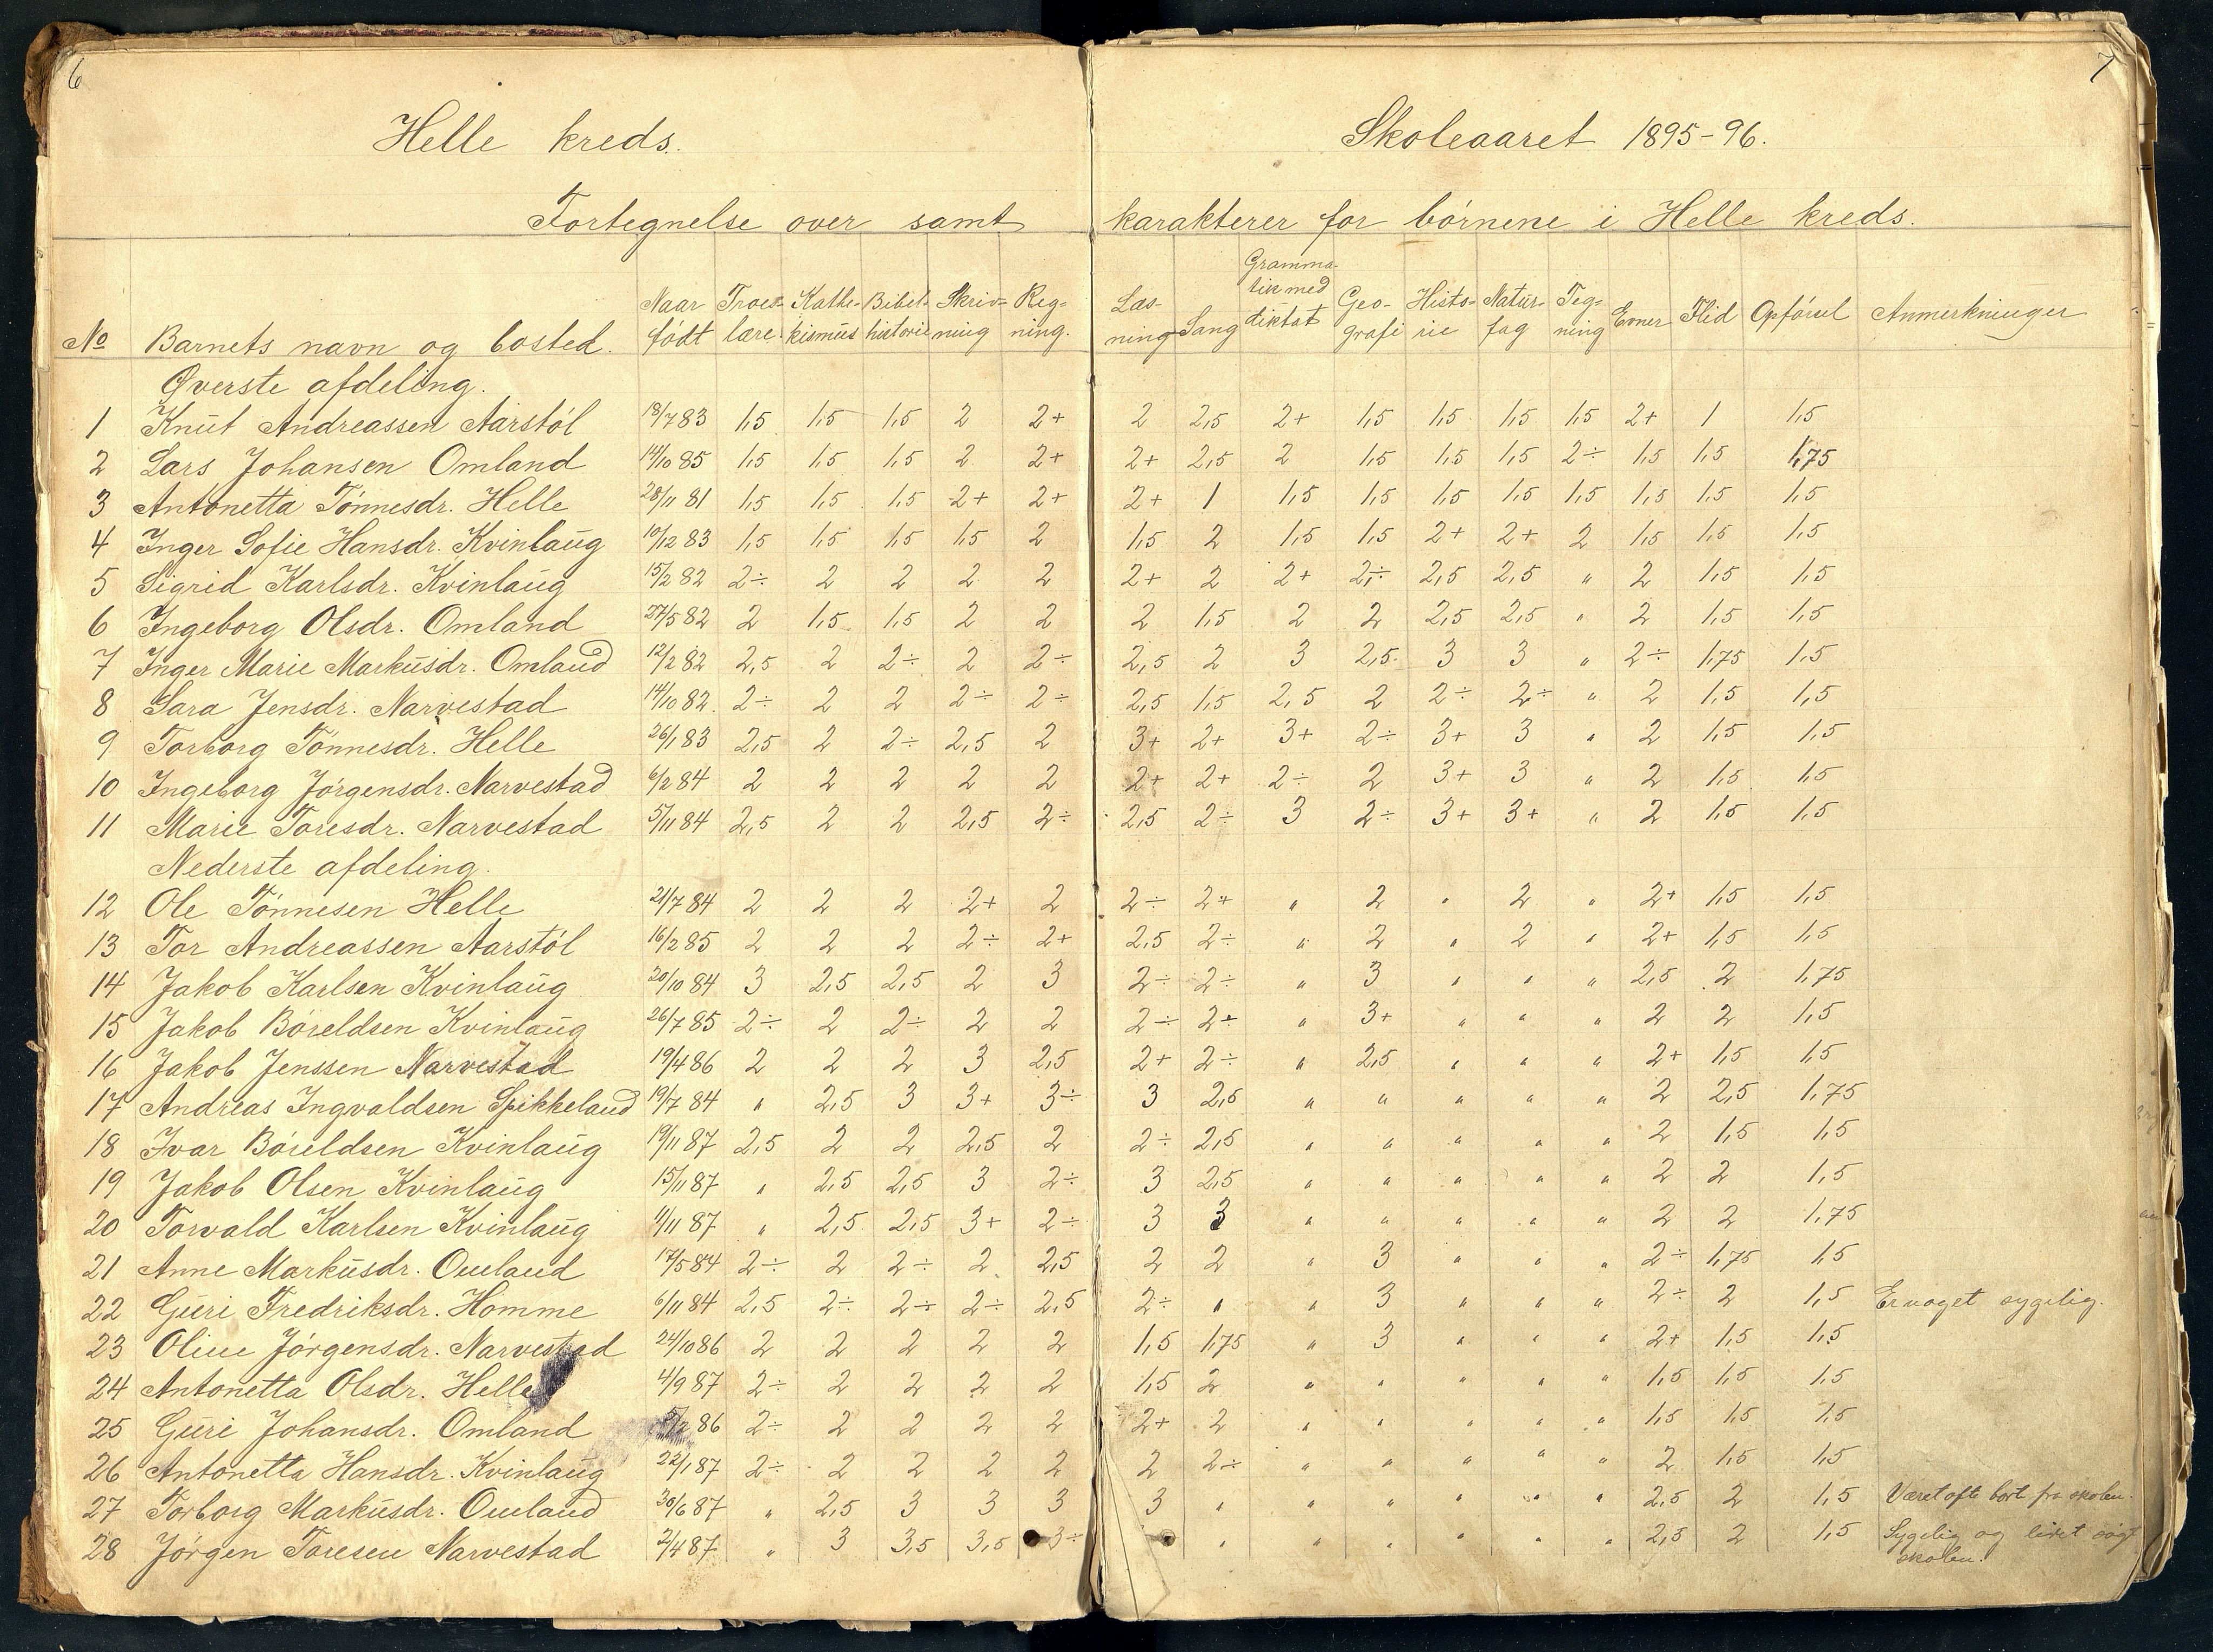 6
7
Helle kreds.
Skoleaaret 1895-96.
Fortegnelse over samt karakterer for börnene i Helle kreds.
No Barnets navn og bosted. Naar födt Troeslære. Kathekismus Bibelhistorie Skrivning Regning. Læsning Sang Grammatik med diktat Geografi Historie Naturfag Tegning Evner Flid Opförsel Anmerkninger
Øverste afdeling.
1 Knut Andreassen Aarstöl 18/7 83 1,5 1,5 1,5 2 2+ 2 2,5 2+ 1,5 1,5 1,5 1,5 2+ 1 1,5
2 Lars Johansen Omland 14/10 85 1,5 1,5 1,5 2 2+ 2+ 2,5 2 1,5 1,5 1,5 2÷ 1,5 1,5 1,75
3 Antonetta Tönnesdr. Helle 28/11 81 1,5 1,5 1,5 2+ 2+ 2+ 1 1,5 1,5 1,5 1,5 1,5 1,5 1,5 1,5
4 Inger Sofie Hansdr. Kvinlaug 10/12 83 1,5 1,5 1,5 1,5 2 1,5 2 1,5 1,5 2+ 2+ 2 1,5 1,5 1,5
5 Sigrid Karlsdr. Kvinlaug 15/2 82 2÷ 2 2 2 2 2+ 2 2+ 2÷ 2,5 2,5 " 2 1,5 1,5
6 Ingeborg Olsdr. Omland 27/5 82 2 1,5 1,5 2 2 2 1,5 2 2 2,5 2,5 " 2 1,5 1,5
7 Inger Marie Markusdr. Omland 12/2 82 2,5 2 2÷ 2 2÷ 2,5 2 3 2,5 3 3 " 2÷ 1,75 1,5
8 Sara Jensdr. Narvestad 14/10 82. 2÷ 2 2 2÷ 2÷ 2,5 1,5 2,5 2 2÷ 2÷ " 2 1,5 1,5
9 Torborg Tönnesdr. Helle 26/1 83 2,5 2 2÷ 2,5 2 3+ 2+ 3+ 2÷ 3+ 3 " 2 1,5 1,5
10 Ingeborg Jörgensdr. Narvestad 6/2 84 2 2 2 2 2 2+ 2+ 2÷ 2 3+ 3 " 2 1,5 1,5
11 Marie Toresdr. Narvestad 5/11 84 2,5 2 2 2,5 2÷ 2,5 2÷ 3 2÷ 3+ 3+ " 2 1,5 1,5
Nederste afdeling.
12 Ole Tönnesen Helle 21/7 84 2 2 2 2+ 2 2÷ 2+ " 2 " 2 " 2+ 1,5 1,5
13 Tor Andreassen Aarstöl 16/2 85 2 2 2 2÷ 2+ 2,5 2÷ " 2 " 2 " 2+ 1,5 1,5
14 Jakob Karlsen Kvinlaug 20/10 84 3 2,5 2,5 2 3 2÷ 2÷ " 3 " " " 2,5 2 1,75
15 Jakob Böreldsen Kvinlaug 26/7 85 2÷ 2 2÷ 2 2 2÷ 2+ " 3+ " " " 2 2 1,5
16 Jakob Jenssen Narvestad 19/4 86 2 2 2 3 2,5 2+ 2÷ " 2,5 " " " 2+ 1,5 1,5
17 Andreas Ingvaldsen Spikkeland 19/7 84 " 2,5 3 3+ 3÷ 3 2,5 " " " " " 2 2,5 1,75
18 Ivar Böreldsen Kvinlaug 19/11 87 2,5 2 2 2,5 2 2÷ 2,5 " " " " " 2 1,5 1,5
19 Jakob Olsen Kvinlaug 15/11 87 " 2,5 2,5 3 2÷ 3 2,5 " " " " " 2 2 1,5
20 Torvald Karlsen Kvinlaug 11/11 87 " 2,5 2,5 3+ 2÷ 3 3 " " " " " 2 2 1,75
21 Anne Markusdr. Omland 17/5 84 2÷ 2 2÷ 2 2,5 2 2 " 3 " " " 2÷ 1,75 1,5
22 Guri Fredriksdr. Homme 6/11 84 2,5 2÷ 2÷ 2÷ 2,5 2÷ " " 3 " " " 2÷ 2 1,5 Er noget sygelig.
23 Oline Jörgensdr. Narvestad 24/10 86 2 2 2 2 2 1,5 1,75 " 3 " " " 2+ 1,5 1,5
24 Antonetta Olsdr. Helle 4/9 87 2÷ 2 2 2 2 1,5 2 " " " " " 1,5 1,5 1,5
25 Guri Johansdr. Omland 5/2 86 2÷ 2 2 2 2 2+ 2 " " " " " 1,5 1,5 1,5
26 Antonetta Hansdr. Kvinlaug 22/1 87 2÷ 2 2 2 2 2 2÷ " " " " " 2 1,5 1,5
27 Torborg Markusdr. Omland 30/6 87 " 2,5 3 3 3 3 " " " " " " 2,5 2 1,5 Været ofte bort fra skolen.
28 Jörgen Toresen Narvestad 2/4 87 " 3 3,5 3,5 3÷ " " " " " " 2,5 2 1,5 Sygelig og lidet sögt
skolen.